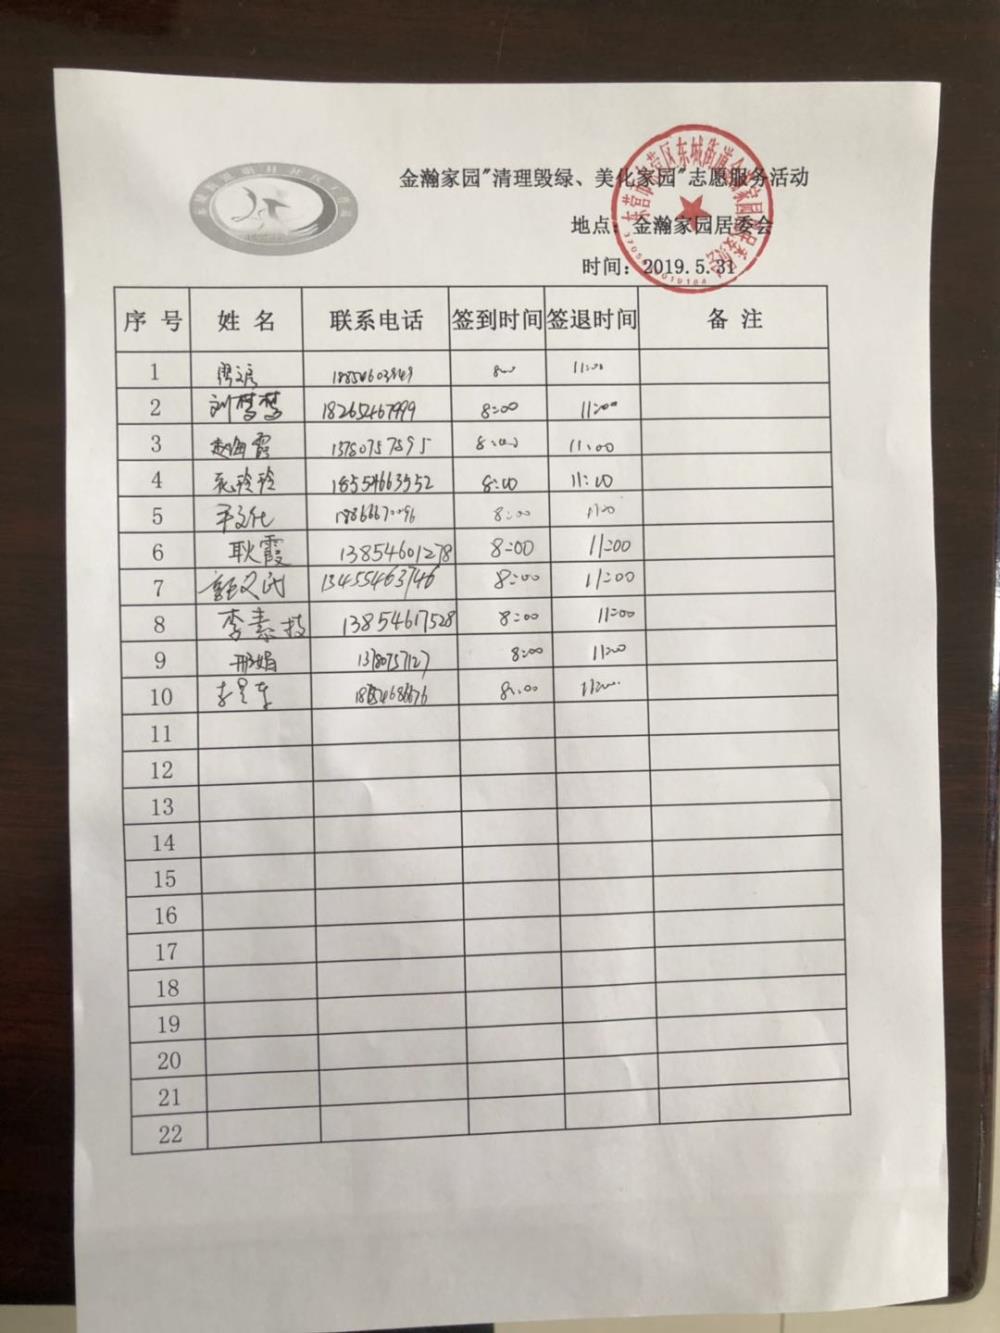 金瀚家园"清理毁绿、美化家园"志愿服务活动
地点：金瀚家园居委会
时间：2019.5.31
序号 姓名 联系电话 签到时间 签退时间 备注
1 11:00
2 刘梦梦 18265467999 8:00 11:00
3 赵海霞 13780757595 8:00 11:00
4 玲玲 18554663552 8:00 11:00
5 8:00 1100
6 耿霞 13854601278 8:00 11:00
7 13455463746 8:00 11:00
8 李素技 13854617528 8:00 11:00
9 邢娟 8:00 11:00
10 8:00 11:00
11
12
13
14
15
16
17
18
19
20
21
22